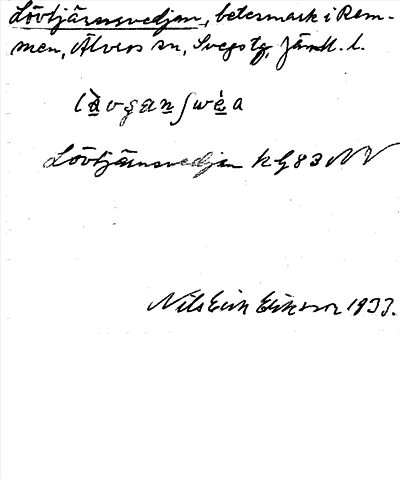 Lövtjärnsvedjan, betesmark i Rem-
men, Älvros sn, Svegs tg, Jämtl. l.
Lövtjärnsvedjan k G 83 NV
Nils Erik Eriksson 1933.